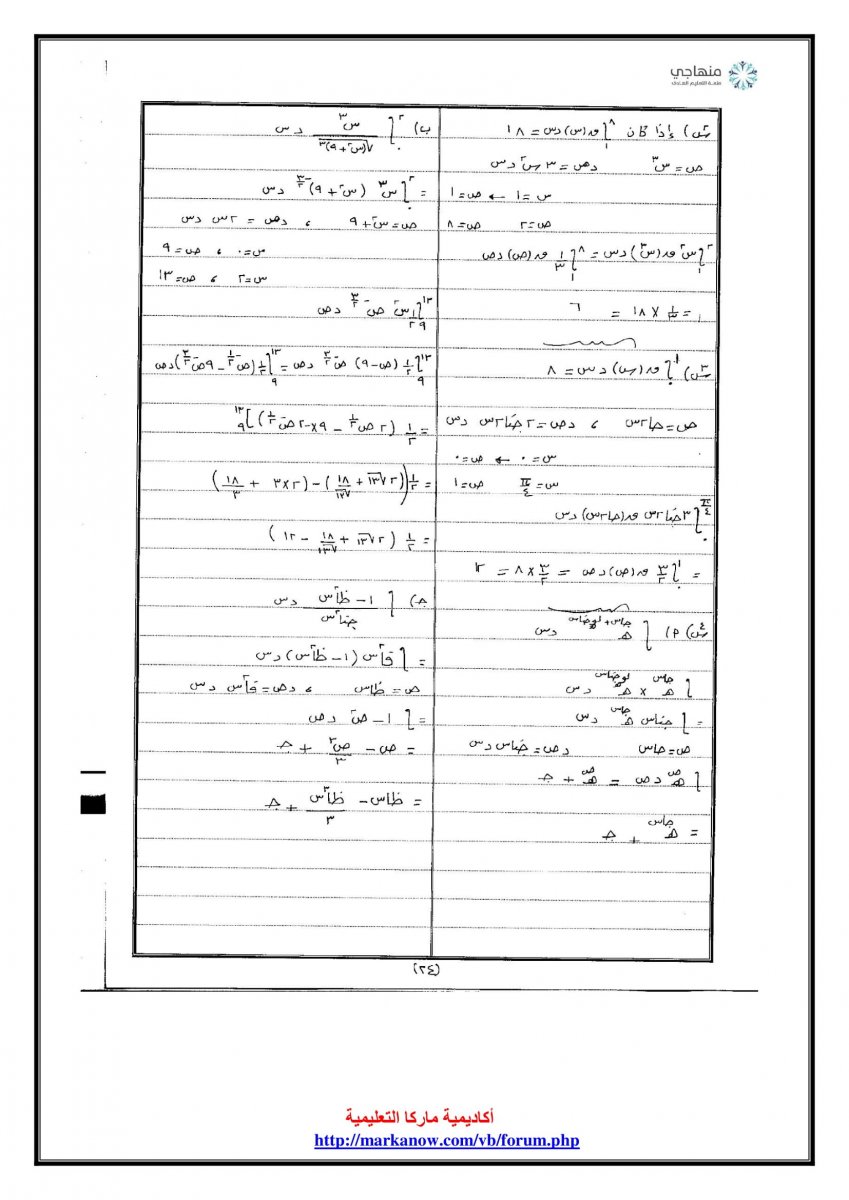 منهاجي
متعة التعليم الهادف
س٢) إذا كان ∫₁^٨ ق(س) دس = ١٨
ص = س^٣ دص = ٣س^٢ دس
س = ١ ← ص = ١
ص = ٢ ص = ٨
∫₁^٢ س^٢ ق(س^٣) دس = ∫₁^٨ ١/٣ ق(ص) دص
= ١/٣ × ١٨ = ٦
س٣) ∫₀^١ ق(س) دس = ٨
ص = جا٢س ، دص = ٢جتا٢س دس
س = ٠ ← ص = ٠
س = π/٤ ص = ١
∫₀^(π/٤) ٣جتا٢س ق(جا٢س) دس
= ∫₀^١ ٣/٢ ق(ص) دص = ٣/٢ × ٨ = ١٢
س٤) أ) ∫ هـ^(جاس + لو جتاس) دس
∫ هـ^جاس × هـ^(لو جتاس) دس
= ∫ جتاس هـ^جاس دس
ص = جاس دص = جتاس دس
∫ هـ^ص دص = هـ^ص + جـ
= هـ^جاس + جـ
ب) ∫₀^٢ س^٣ / √(س^٢ + ٩)^٣ دس
= ∫₀^٢ س^٣ (س^٢ + ٩)^(-٣/٢) دس
ص = س^٢ + ٩ ، دص = ٢س دس
س = ٠ ، ص = ٩
س = ٢ ، ص = ١٣
∫₉^١٣ ١/٢ س^٢ ص^(-٣/٢) دص
∫₉^١٣ ١/٢ (ص - ٩) ص^(-٣/٢) دص = ∫₉^١٣ ١/٢ (ص^(-١/٢) - ٩ص^(-٣/٢)) دص
= ١/٢ (٢ص^(١/٢) - ٩×-٢ص^(-١/٢))]₉^١٣
= ١/٢ ((٢√١٣ + ١٨/√١٣) - (٢×٣ + ١٨/٣))
= ١/٢ (٢√١٣ + ١٨/√١٣ - ١٢)
جـ) ∫ (١ - ظا^٢س) / جتا^٢س دس
= ∫ قا^٢س (١ - ظا^٢س) دس
ص = ظاس ، دص = قا^٢س دس
= ∫ ١ - ص^٢ دص
= ص - ص^٣/٣ + جـ
= ظاس - ظا^٣س/٣ + جـ
(٢٤)
أكاديمية ماركا التعليمية
http://markanow.com/vb/forum.php